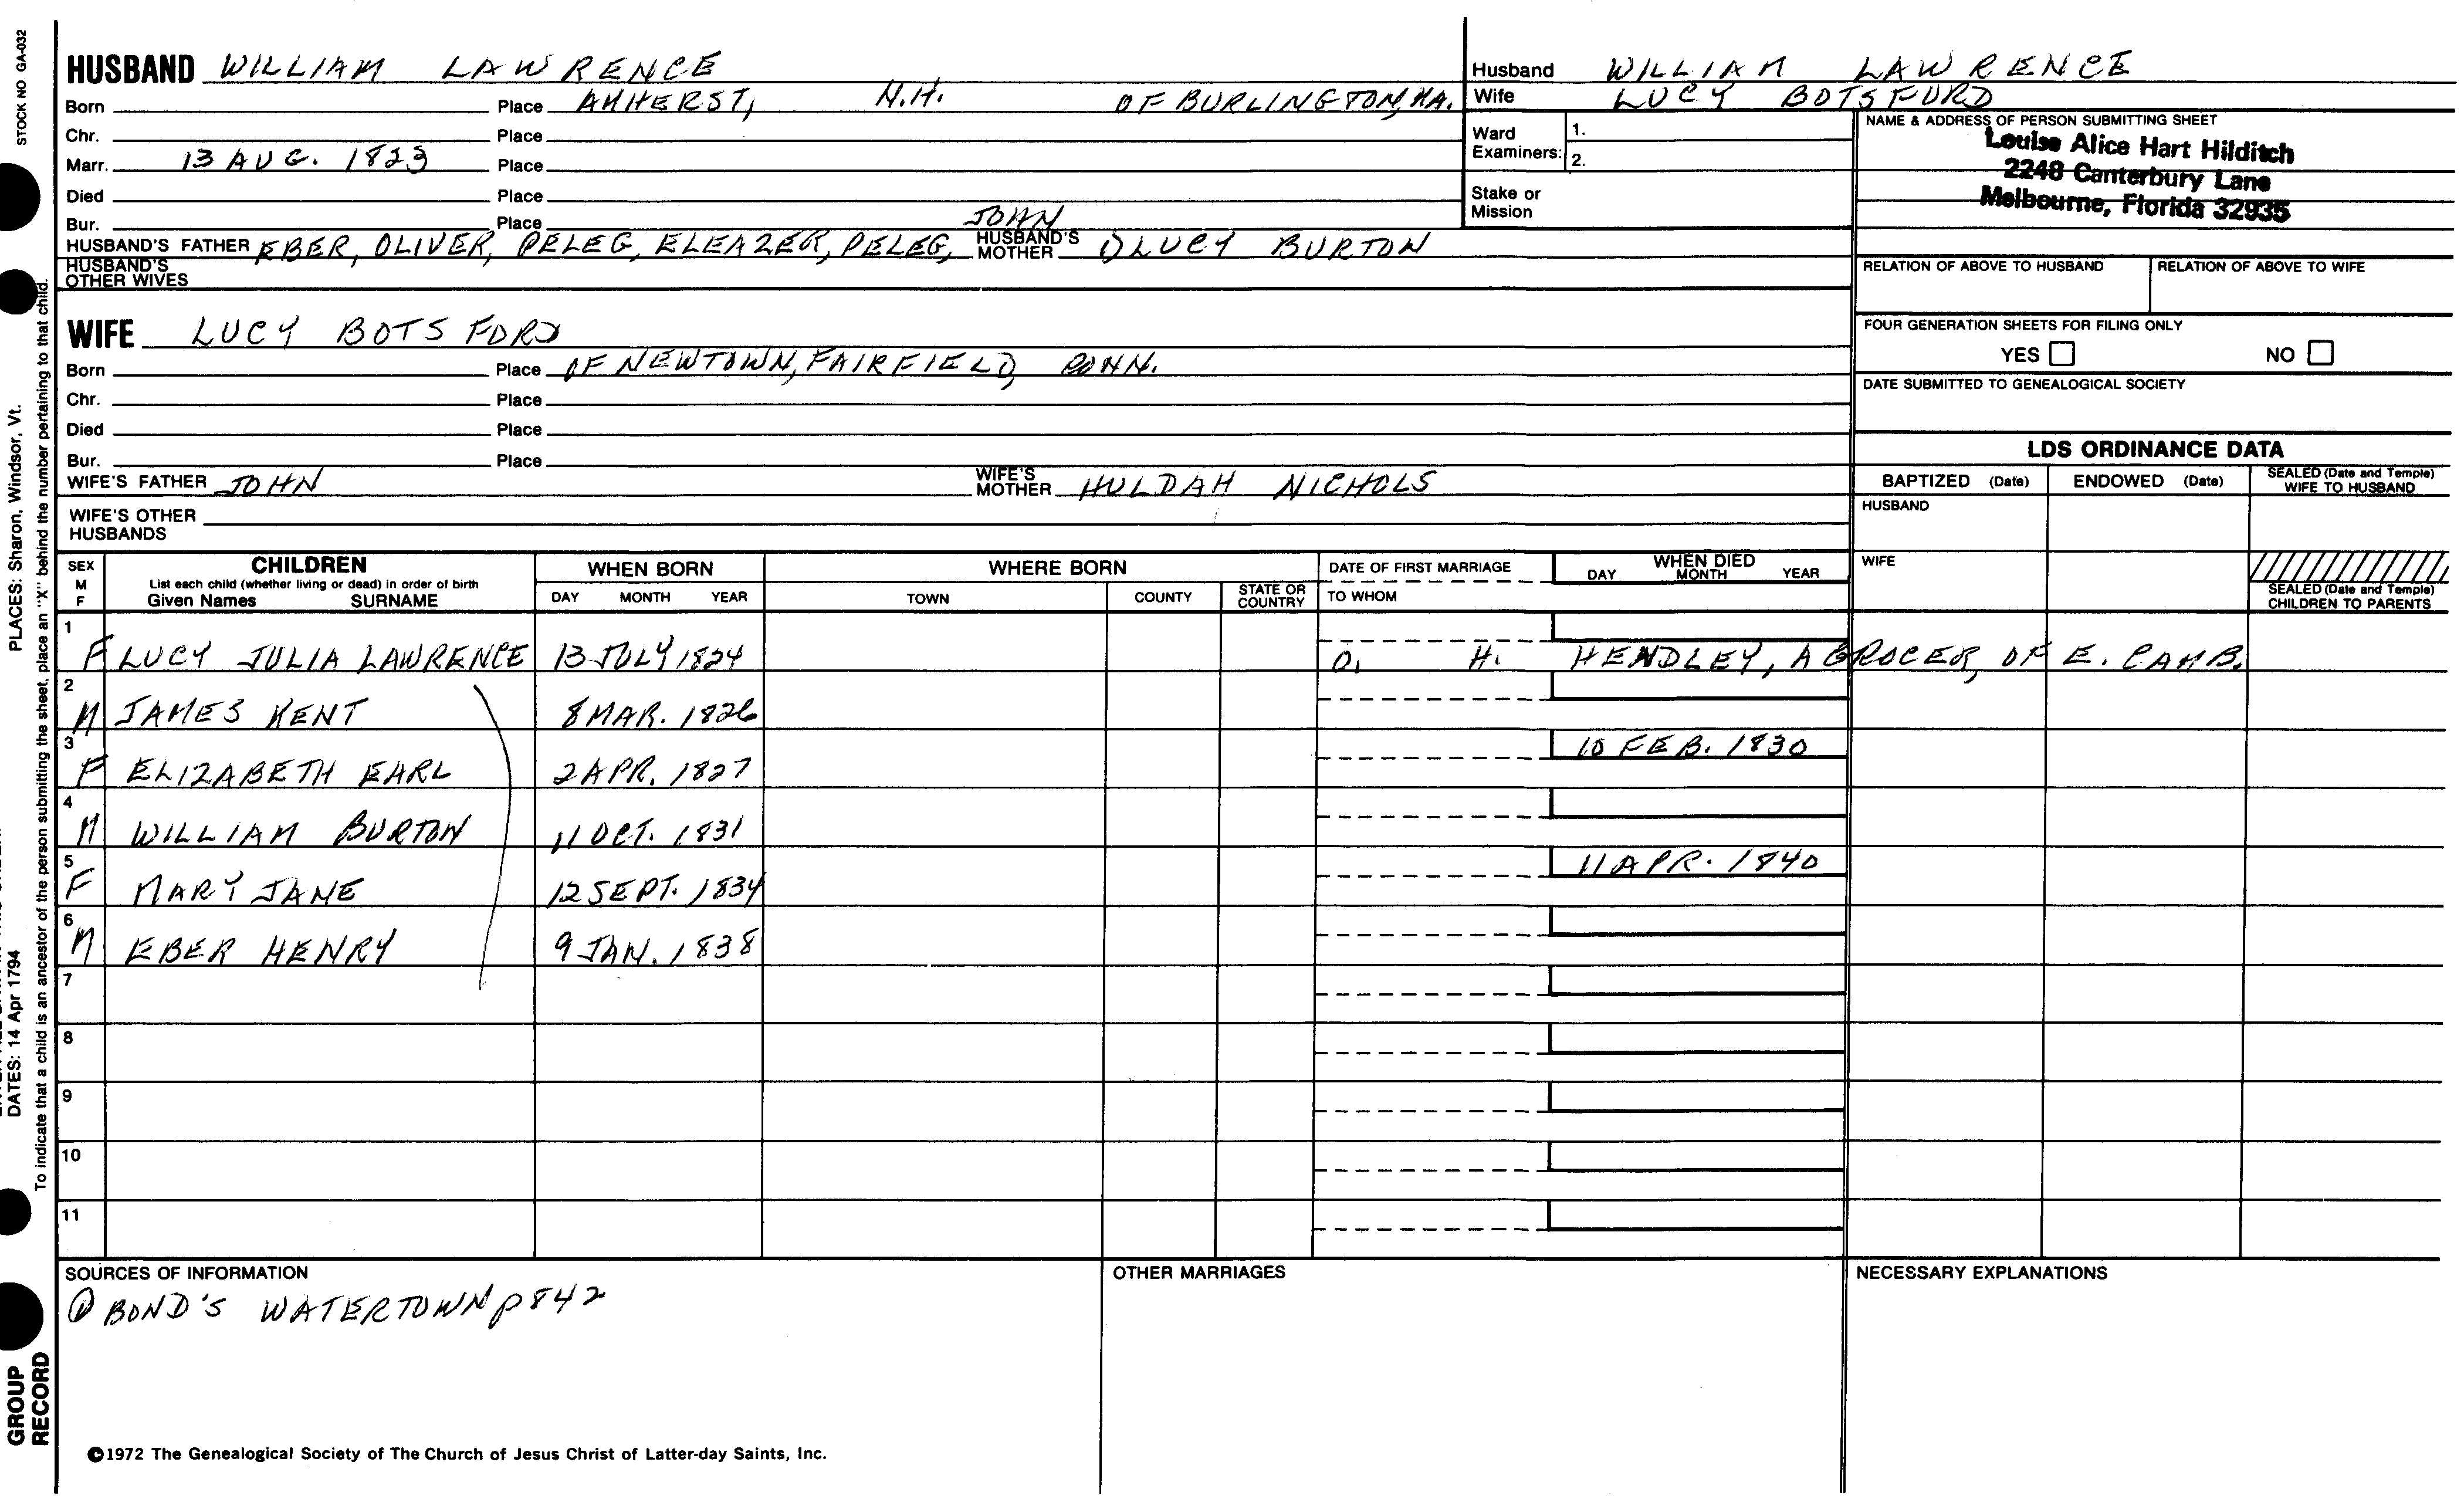 STOCK NO. GA-032
PLACES: Sharon, Windsor, Vt.
DATES: 14 Apr 1794
To indicate that a child is an ancestor of the person submitting the sheet, place an "X" behind the number pertaining to that child.
GROUP
RECORD
HUSBAND WILLIAM LAWRENCE
Born Place AMHERST, N.H. OF BURLINGTON, MA.
Chr. Place
Marr. 13 AUG. 1823 Place
Died Place
Bur. Place JOHN
HUSBAND'S FATHER EBER, OLIVER, PELEG, ELEAZER, PELEG, HUSBAND'S MOTHER ① LUCY BURTON
HUSBAND'S
OTHER WIVES
WIFE LUCY BOTSFORD
Born Place OF NEWTOWN, FAIRFIELD, CONN.
Chr. Place
Died Place
Bur. Place
WIFE'S FATHER JOHN WIFE'S MOTHER HULDAH NICHOLS
WIFE'S OTHER
HUSBANDS
Husband WILLIAM LAWRENCE
Wife LUCY BOTSFORD
Ward
Examiners: 1.
2.
Stake or
Mission
NAME & ADDRESS OF PERSON SUBMITTING SHEET
Louise Alice Hart Hilditch
2248 Canterbury Lane
Melbourne, Florida 32935
RELATION OF ABOVE TO HUSBAND RELATION OF ABOVE TO WIFE
FOUR GENERATION SHEETS FOR FILING ONLY
YES NO
DATE SUBMITTED TO GENEALOGICAL SOCIETY
LDS ORDINANCE DATA
BAPTIZED (Date) ENDOWED (Date) SEALED (Date and Temple) WIFE TO HUSBAND
HUSBAND
WIFE
SEALED (Date and Temple)
CHILDREN TO PARENTS
SEX
M
F
CHILDREN
List each child (whether living or dead) in order of birth
Given Names SURNAME
WHEN BORN
DAY MONTH YEAR
WHERE BORN
TOWN COUNTY STATE OR COUNTRY
DATE OF FIRST MARRIAGE
TO WHOM
WHEN DIED
DAY MONTH YEAR
1 F LUCY JULIA LAWRENCE 13 JULY 1824 O. H. HENDLEY, A GROCER, OF E. CAMB.
2 M JAMES KENT 8 MAR. 1826
3 F ELIZABETH EARL 2 APR. 1827 10 FEB. 1830
4 M WILLIAM BURTON 11 OCT. 1831
5 F MARY JANE 12 SEPT. 1834 11 APR. 1840
6 M EBER HENRY 9 JAN. 1838
7
8
9
10
11
SOURCES OF INFORMATION
① BOND'S WATERTOWN p 842
OTHER MARRIAGES
NECESSARY EXPLANATIONS
©1972 The Genealogical Society of The Church of Jesus Christ of Latter-day Saints, Inc.